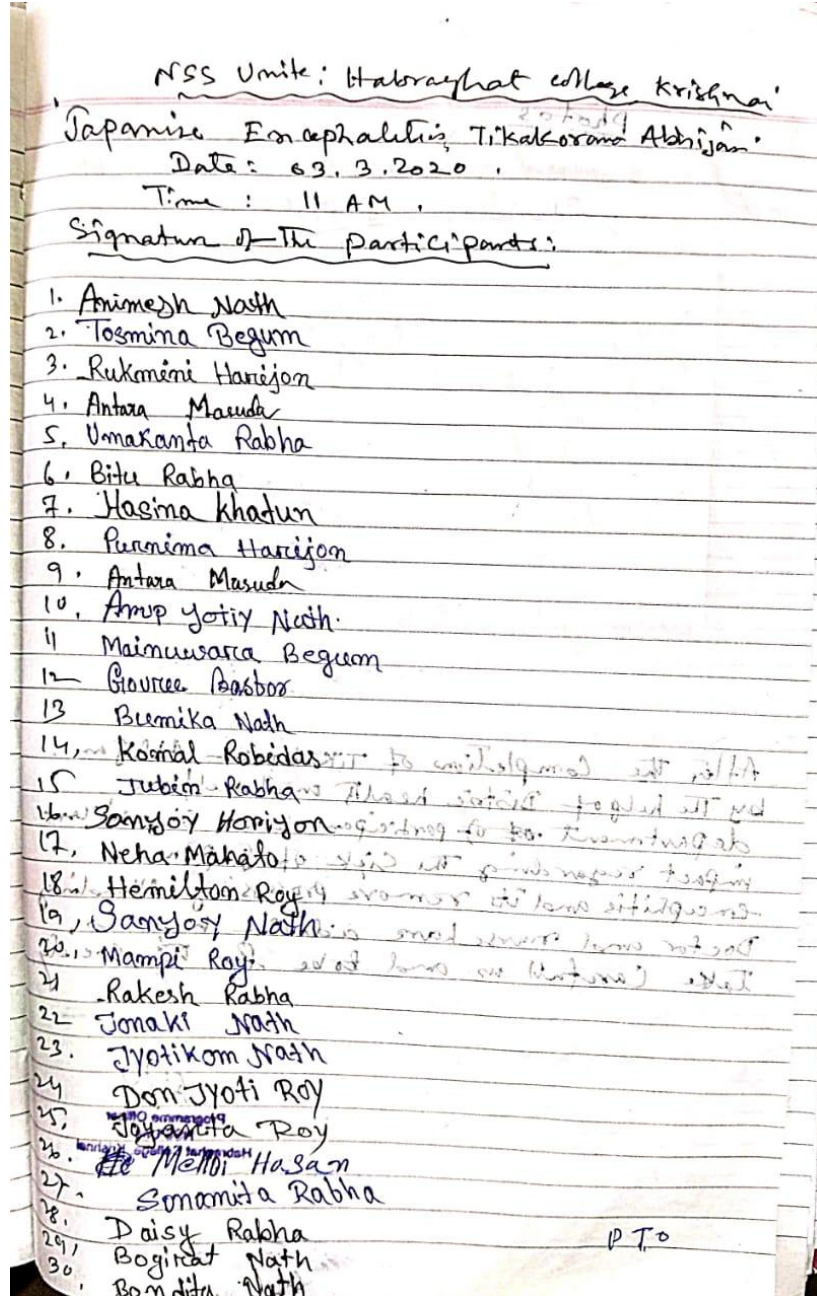 NSS Unite: Habraghat college Krishnai
Japanise Encephalitis, Tikakorond Abhijan
Date: 03.3.2020.
Time: 11 AM.
Signature of The participants:
1. Animesh Nath
2. Tosmina Begum
3. Rukmini Harijon
4. Antara Masuda
5. Umakanta Rabha
6. Bitu Rabha
7. Hasina Khatun
8. Purnima Harijon
9. Antara Masuda
10. Anup Yotiy Nath.
11 Mainuwara Begum
12 Gouree Basbor
13 Bumika Nath
14, Komal Robidas
15 Jubin Rabha
16. Sanjoy Horijon
17, Neha Mahato
18. Hemilton Roy
19, Sanjoy Nath
20. Mampi Roy
21 Rakesh Rabha
22 Jonaki Nath
23. Jyotikom Nath
24 Don Jyoti Roy
25. Joyanta Roy
26. Mehbi Hasan
27. Sonamita Rabha
28. Daisy Rabha
29, Bogirat Nath
30. Bondita Nath
P T O